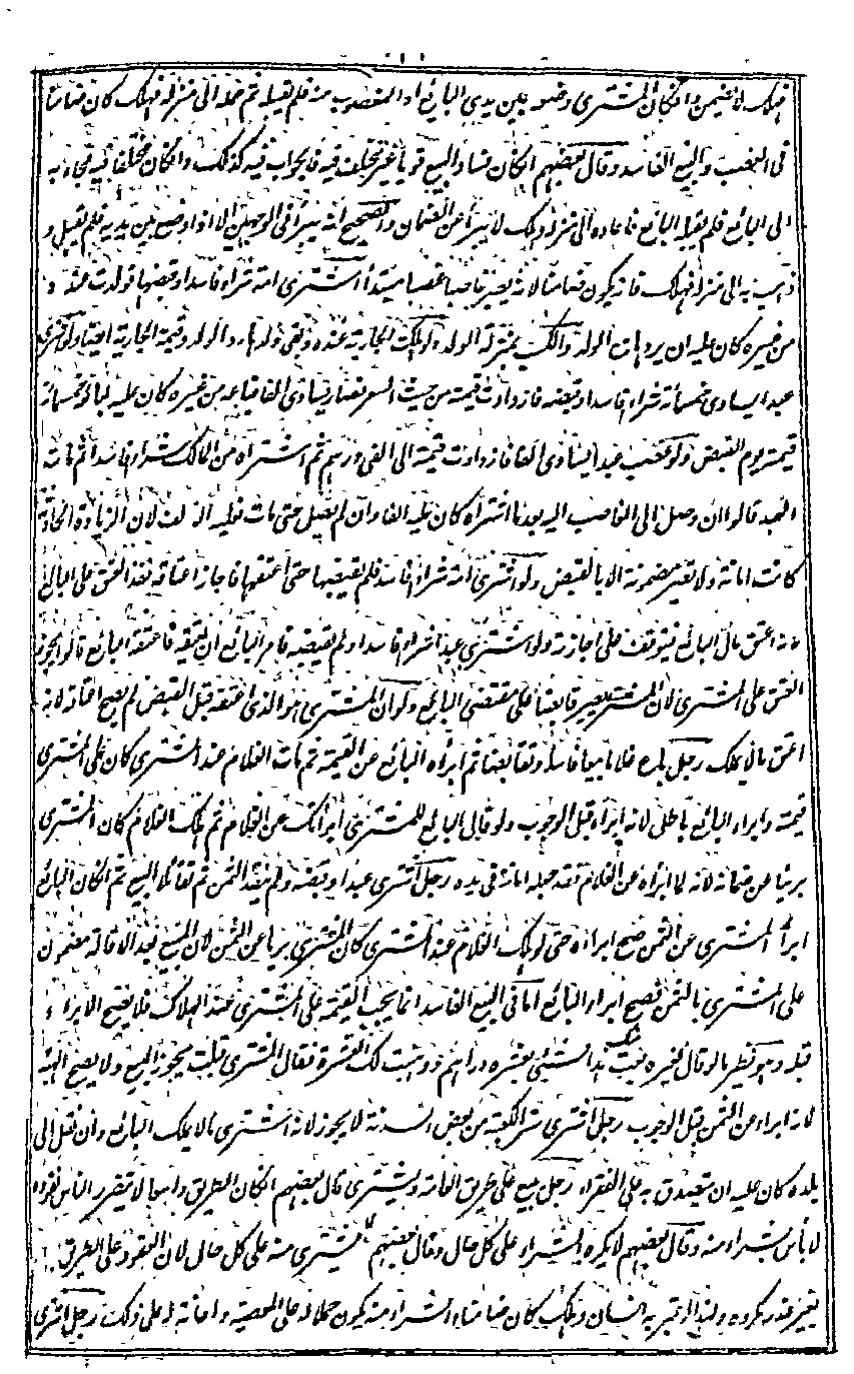 فهلك لا يضمن وان كان المشترى وضعه بين يدى البائع او المغصوب منه فلم يقبله ثم حمله الى منزله فهلك كان ضامنا
فى الغصب والبيع الفاسد وقال بعضهم ان كان فساد البيع قويا غير مختلف فيه فالجواب فيه كذلك وان كان مختلفا فيه فجاء به
الى البائع فلم يقبله البائع فاعاده الى منزله وهلك لا يبرأ عن الضمان والصحيح انه يبرأ فى الوجهين الا اذا وضع بين يديه فلم يقبل و
ذهب به الى منزله فهلك فانه يكون ضامنا لانه يصير غاصبا غصبا مبتدأ اشترى امة شراء فاسدا وقبضها فولدت عنده
من غيره كان عليه ان يردها مع الولد والكسب بمنزلة الولد ولو هلكت الجارية عنده وبقى ولدها رد الولد وقيمة الجارية ايضا ولو اشترى
عبدا يساوى خمسمائة شراء فاسدا وقبضه فازدادت قيمته من حيث السعر فصار يساوى الفا فباعه من غيره كان عليه للبائع خمسمائة
قيمته يوم القبض ولو غصب عبدا يساوى الفا فازدادت قيمته الى الفى درهم ثم اشتراه من المالك شراء فاسدا ثم مات
العبد قالوا ان وصل الى الغاصب اليه بعد ما اشتراه كان عليه الفا وان لم يصل حتى مات فعليه الف لان الزيادة الحادثة
كانت امانة ولا تصير مضمونة الا بالقبض ولو اشترى امة شراء فاسدا فلم يقبضها حتى اعتقها فاجاز اعتاقه نفذ العتق على البائع
لانه اعتق مال البائع فيتوقف على اجازته ولو اشترى عبدا شراء فاسدا ولم يقبضه فامر البائع ان يعتقه فاعتقه البائع قالوا يجوز
العتق على المشترى لان المشترى يصير قابضا على مقتضى البائع ولو ان المشترى هو الذى اعتقه قبل القبض لم يصح اعتاقه لانه
اعتق ما لا يملك رجل باع غلاما بيعا فاسدا وتقابضا ثم ابرأه البائع عن القيمة ثم مات الغلام عند المشترى كان على المشترى
قيمته وابراء البائع باطل لانه ابراء قبل الوجوب ولو قال البائع للمشترى ابرأتك عن الغلام ثم هلك الغلام كان المشترى
بريئا عن ضمانه لانه لما ابرأه عن الغلام فقد جعله امانة فى يده رجل اشترى عبدا وقبضه ولم ينقد الثمن ثم تقايلا البيع ثم ان كان البائع
ابرأ المشترى عن الثمن صح ابراؤه حتى لو هلك الغلام عند المشترى كان المشترى بريا عن الثمن لان المبيع بعد الاقالة مضمون
على المشترى بالثمن فيصح ابراء البائع اما فى البيع الفاسد انما يجب القيمة على المشترى عند الهلاك فلا يصح الابراء
قبله وهو نظير ما لو قال لغيره بعت منك هذا الشئ بعشرة دراهم ووهبت لك العشرة فقال المشترى قبلت يجوز البيع ولا يصح الهبة
لانه ابراء عن الثمن قبل الوجوب رجل اشترى ستر الكعبة من بعض السدنة لا يجوز لانه اشترى ما لا يملك البائع وان نقل الى
بلده كان عليه ان يتصدق به على الفقراء رجل يبيع على طريق العامة ويشترى قال بعضهم ان كان الطريق واسعا لا يتضرر الناس بقعوده
لا بأس بشراء منه وقال بعضهم لا يكره الشراء على كل حال وقال بعضهم لا يشترى منه على كل حال لان القعود على الطريق
بغير عذر مكروه ولهذا لو عثر به انسان وهلك كان ضامنا والشراء منه يكون حملا له على المعصية واعانة له على ذلك رجل اشترى